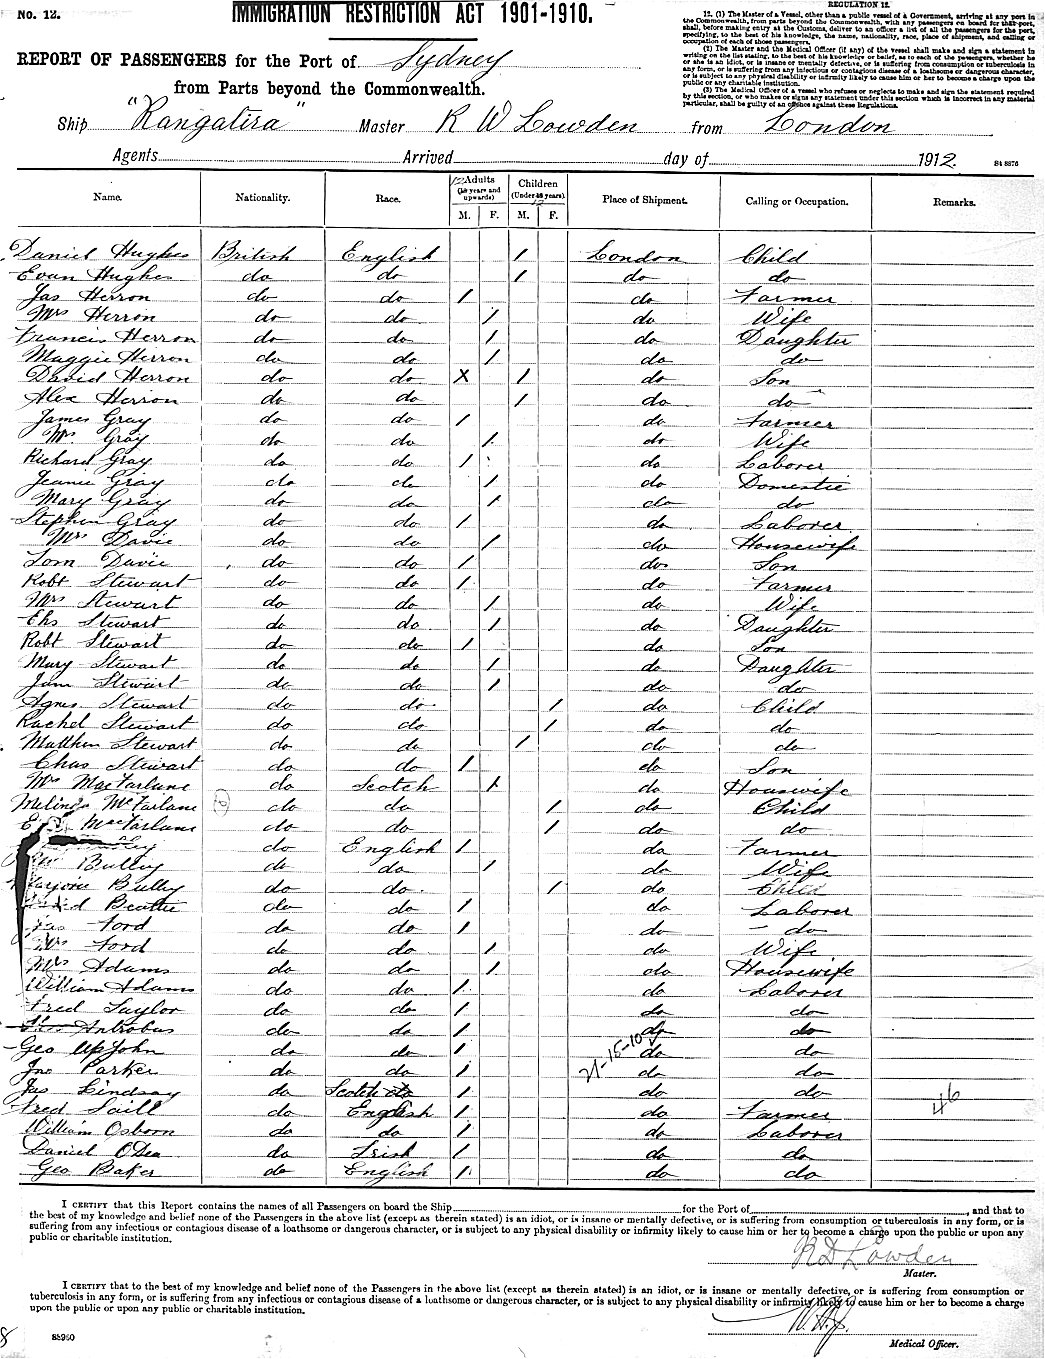 No. 12.
IMMIGRATION RESTRICTION ACT 1901-1910.
REGULATION 12.
12. (1) The Master of a Vessel, other than a public vessel of a Government, arriving at any port in
the Commonwealth, from parts beyond the Commonwealth, with any passengers on board for that port,
shall, before making entry at the Customs, deliver to an officer a list of all the passengers for the port,
specifying, to the best of his knowledge, the name, nationality, race, place of shipment, and calling or
occupation of each of those passengers.
(2) The Master and the Medical Officer (if any) of the vessel shall make and sign a statement in
writing on the list stating, to the best of his knowledge or belief, as to each of the passengers, whether he
or she is an idiot, or is insane or mentally defective, or is suffering from consumption or tuberculosis in
any form, or is suffering from any infectious or contagious disease of a loathsome or dangerous character,
or is subject to any physical disability or infirmity likely to cause him or her to become a charge upon the
public or any public charitable institution.
(3) The Medical Officer of a vessel who refuses or neglects to make and sign the statement required
by this section, or who makes or signs any statement under this section which is incorrect in any material
particular, shall be guilty of an offence against these Regulations.
REPORT OF PASSENGERS for the Port of Sydney
from Parts beyond the Commonwealth.
Ship "Rangatira" Master R W Lowden from London
Agents Arrived day of 1912. S4 8876
Name. Nationality. Race. 12 Adults (years and upwards) M. F. Children (Under years). 12 M. F. Place of Shipment. Calling or Occupation. Remarks.
Daniel Hughes British English 1 London Child
Evan Hughes do do 1 do do
Jas Herron do do 1 do Farmer
Mrs Herron do do 1 do Wife
Francis Herron do do 1 do Daughter
Maggie Herron do do 1 do do
David Herron do do X 1 do Son
Alex Herron do do 1 do do
James Gray do do 1 do Farmer
Mrs Gray do do 1 do Wife
Richard Gray do do 1 do Laborer
Jeanie Gray do do 1 do Domestic
Mary Gray do do 1 do do
Stephen Gray do do 1 do Laborer
Mrs Davie do do 1 do Housewife
Tom Davie do do 1 do Son
Robt Stewart do do 1 do Farmer
Mrs Stewart do do 1 do Wife
Stewart do do 1 do Daughter
Robt Stewart do do 1 do Son
Mary Stewart do do 1 do Daughter
Stewart do do 1 do do
Agnes Stewart do do 1 do Child
Rachel Stewart do do 1 do do
Matthew Stewart do do 1 do do
Chas Stewart do do 1 do Son
Mrs MacFarlane do Scotch 1 do Housewife
Melinda McFarlane do do 1 do Child
MacFarlane do do 1 do do
do English 1 do Farmer
Bulley do do 1 do Wife
Marjorie Bulley do do 1 do Child
Beattie do do 1 do Laborer
Jas Ford do do 1 do do
Mrs Ford do do 1 do Wife
Mrs Adams do do 1 do Housewife
William Adams do do 1 do Laborer
Fred Taylor do do 1 do do
Thos Antrobus do do 1 do do
Geo Upjohn do do 1 do do
21-15-10
Jno Parker do do 1 do do
Jas Lindsay do Scotch do 1 do do
46
Fred Saill do English 1 do Farmer
William Osborn do do 1 do Laborer
Daniel O'Dea do Irish 1 do do
Geo Baker do English 1 do do
I CERTIFY that this Report contains the names of all Passengers on board the Ship for the Port of , and that to
the best of my knowledge and belief none of the Passengers in the above list (except as therein stated) is an idiot, or is insane or mentally defective, or is suffering from consumption or tuberculosis in any form, or is
suffering from any infectious or contagious disease of a loathsome or dangerous character, or is subject to any physical disability or infirmity likely to cause him or her to become a charge upon the public or upon any
public or charitable institution.
R D Lowden
Master.
I CERTIFY that to the best of my knowledge and belief none of the Passengers in the above list (except as therein stated) is an idiot, or is insane or mentally defective, or is suffering from consumption or
tuberculosis in any form, or is suffering from any infectious or contagious disease of a loathsome or dangerous character, or is subject to any physical disability or infirmity likely to cause him or her to become a charge
upon the public or upon any public or charitable institution.
Medical Officer.